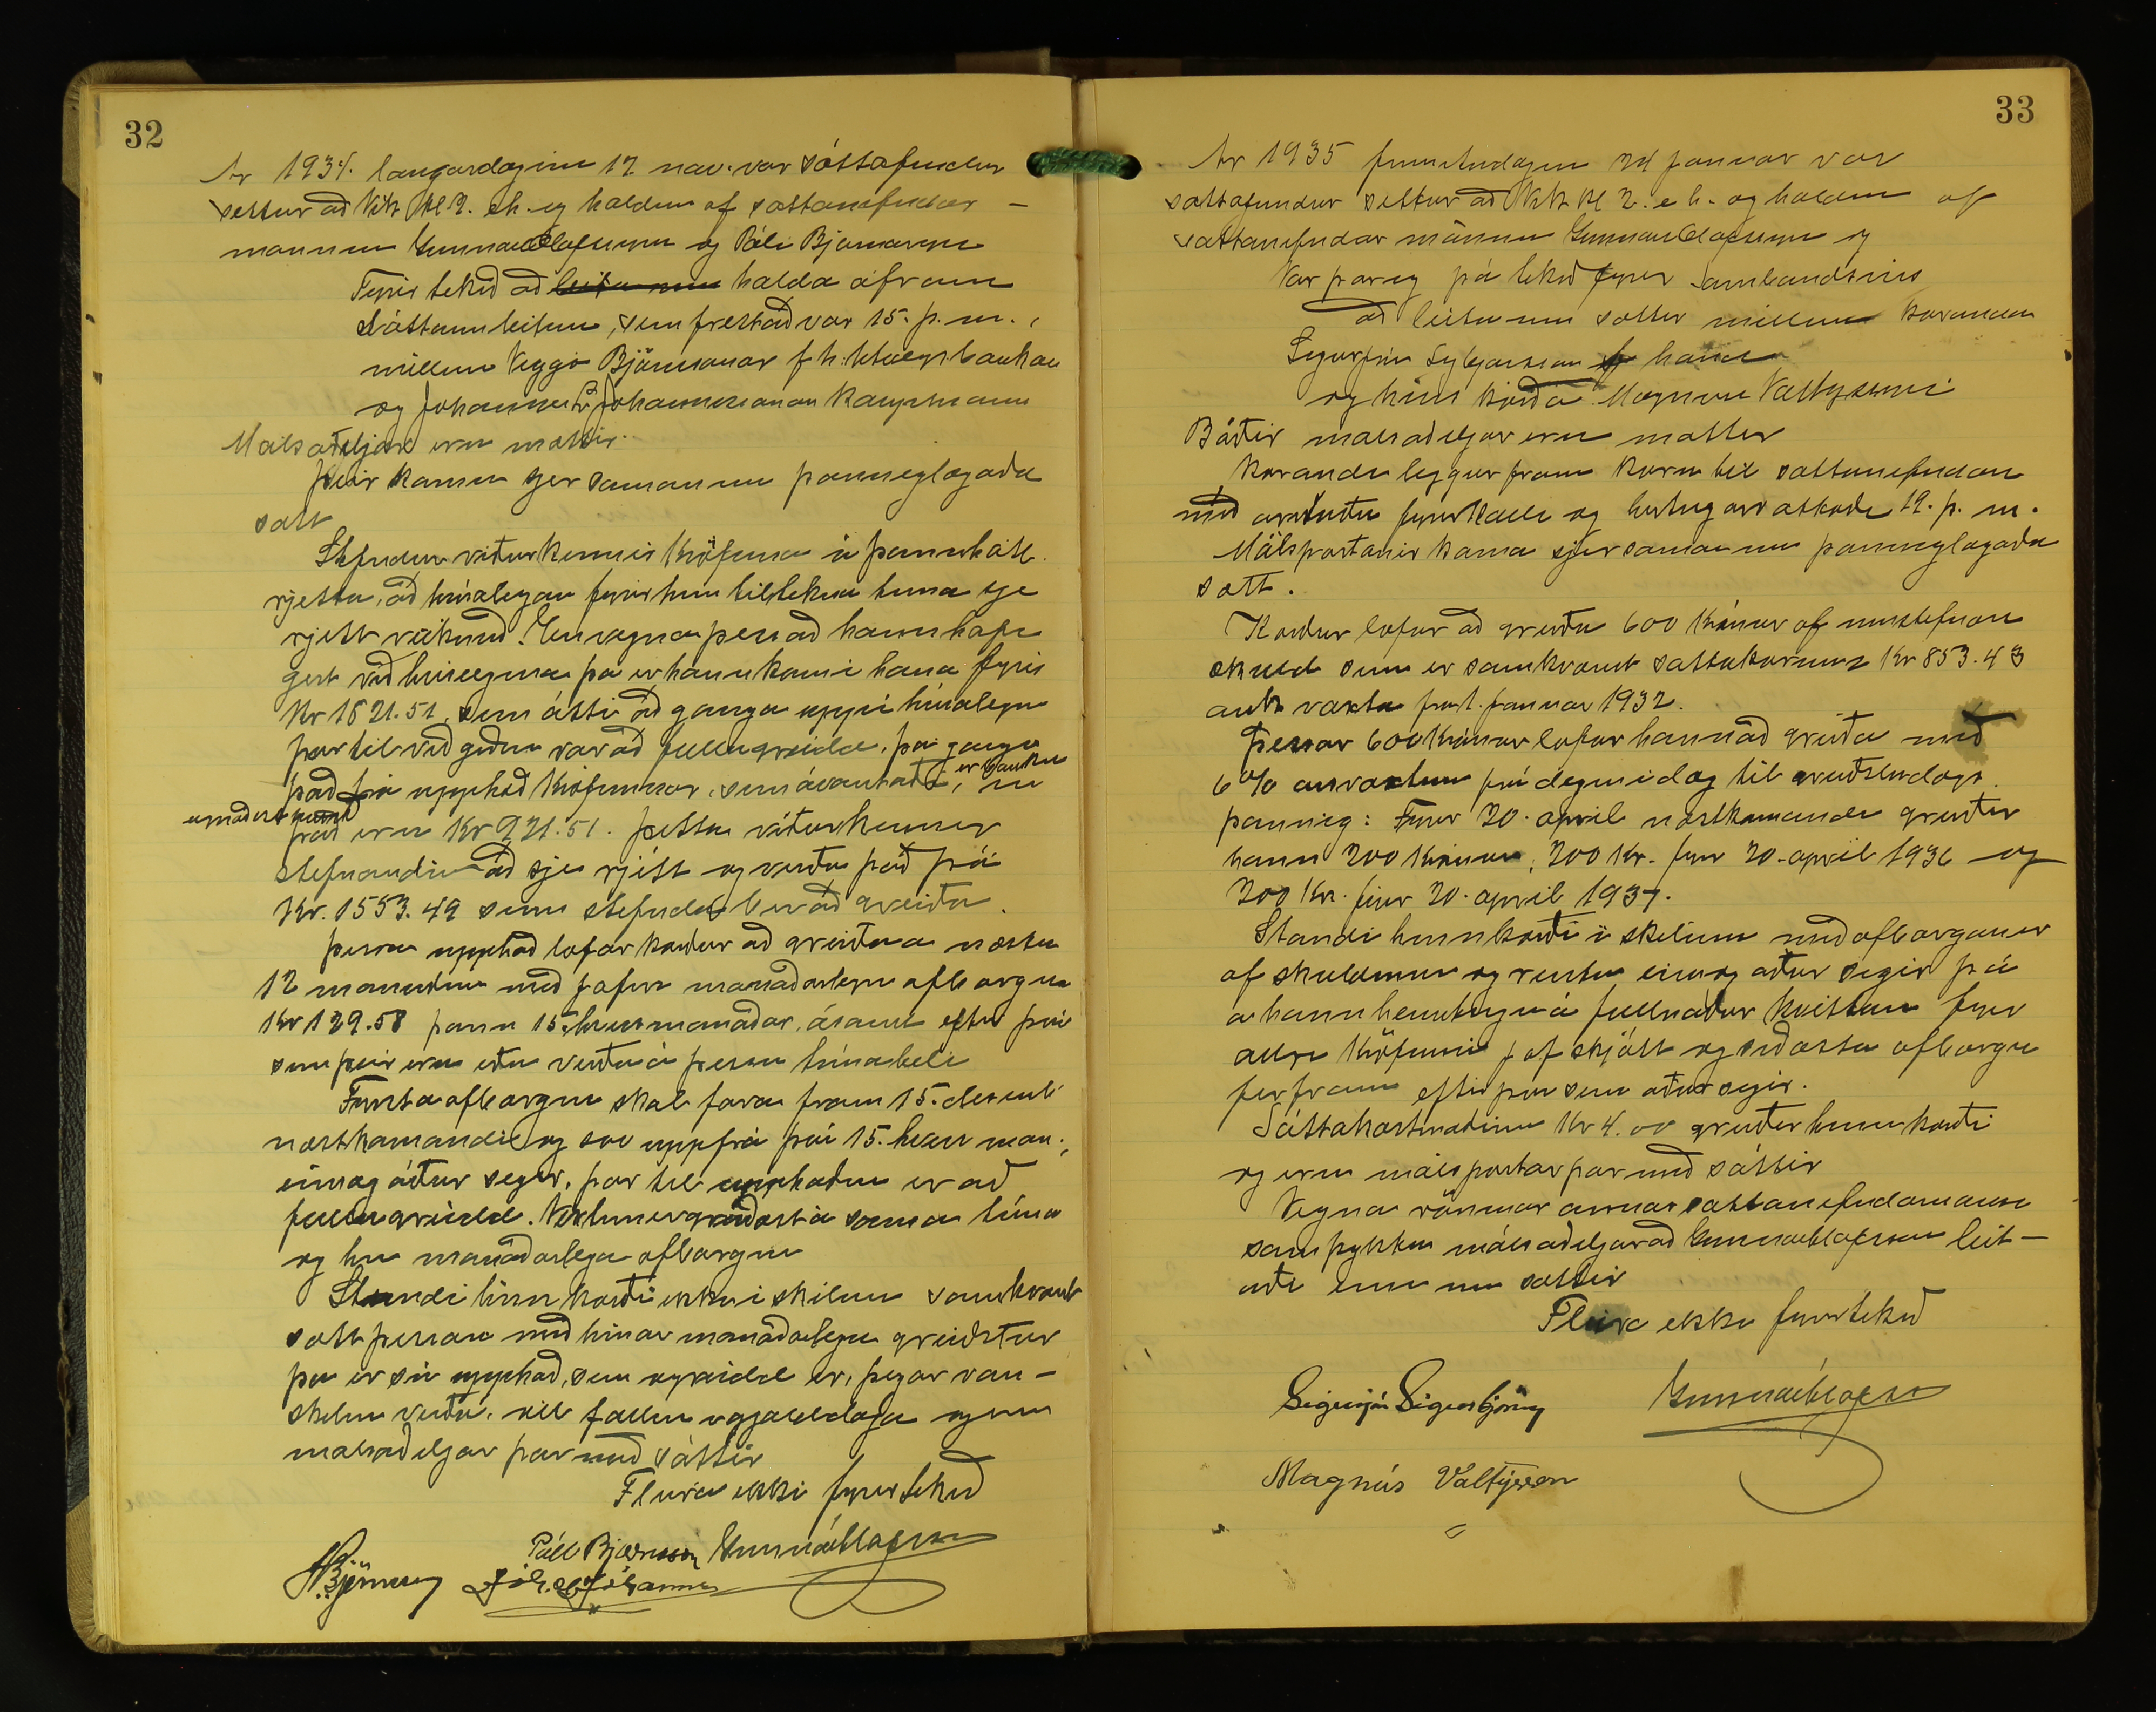 32
Ár 1934. laugardaginn 17 nóv. var sáttafundur
settur að Vík kl 2. eh. og haldinn af sáttanefndar-
mönnum Gunnar Ólafssyni og Páli Bjarnasyni
Fyrir tekið að halda áfram
sáttaumleitun, sem frestað var 15. þ. m.,
millum Viggó Björnssonar f h. Útvegsbankans
og Jóhannesar Jóhannssonar kaupmanns
Málsaðiljar eru mættir.
Þeir koma sjer saman um þannig lagaða
sátt
Stefndur viðurkennir kröfuna á þann hátt
rjetta, að húsaleigan fyrir hinn tiltekna tíma sje
rjett reiknuð. En vegna þess að hann hafi
gert við húseignina þá er hann kom í hana fyrir
Kr 1821.51, sem átti að ganga upp í húsaleigu
þar til viðgerðin var að fullu greidd, þá gangi
það frá upphæð kröfunnar, sem ávantaði, er bankinn
eru Kr 921.51. Þetta viðurkennir
stefnandi að sje rjétt og verða það þá
Kr. 1553.49 sem stefndur ber að greiða.
Þessa upphæð lofar kærður að greiða á næstu
12 mánuðum með jöfnum mánaðarlegum afborgunum
Kr 129.58 þann 15. hvers mánaðar, ásamt eftir því
sem þeir eru eða verða á þessu tímabili
Fyrsta afborgun skal fara fram 15. desemb
næstkomandi og svo uppfrá því 15. hvers mán.,
eins og áður segir, þar til upphæðin er að
fullu greidd. Vextir greiðast á sama tíma
og hin mánaðarlega afborgun
Standi hinn kærði ekki í skilum samkvæmt
sátt þessari með hinar mánaðarlegu greiðslur
þá er sú upphæð, sem ógreidd er, þegar van-
skilin verða, öll fallin í gjalddaga og eru
málsaðiljar þar með sáttir
Fleira ekki fyrirtekið
Páll Bjarnason Gunnar Ólafsson
Björnsson Jóh. Jóhannsson
33
Ár 1935 fimmtudaginn 24 janúar var
sáttafundur settur að Vík kl 2. e h. og haldinn af
sáttanefndar mönnum Gunnar Ólafssyni og
Var þar og þá tekið fyrir
að leita um sættir millum kæranda
hans
og hins kærða Magnúsar Valtýssonar
Báðir málsaðiljar eru mættir
Kærandi leggur fram kæru til sáttanefndar
með árituðu fyrirkalli og birtingarvottorði 19. þ. m.
Málspartarnir koma sjer saman um þannig lagaða
sátt.
Kærður lofar að greiða 600 krónur af umstefndri
skuld sem er samkvæmt sáttakærunni Kr 853.43
auk vaxta frá 1. janúar 1932.
Þessar 600 krónur lofar hann að greiða með
6% ársvöxtum frá deginum í dag til greiðsludags
þannig: Fyrir 20. apríl næstkomandi greiðir
hann 200 krónur, 200 kr. fyrir 20. apríl 1936 og
200 Kr. fyrir 20. apríl 1937.
Standi hinn kærði í skilum með afborganir
af skuldinni og rentur eins og áður segir þá
á hann heimtingu á fullnaðar kvittun fyrir
allri kröfunni jafnskjótt og síðasta afborgun
fer fram eftir því sem áður segir.
Sáttakostnaðinn Kr 4.00 greiðir hinn kærði
og eru málspartar þar með sáttir
Vegna annar sáttanefndarmanns
samþykktu málsaðiljar að Gunnar Ólafsson leit-
aði einn um sættir
Fleira ekki fyrirtekið
Sigurjón Sigurbjörnss Gunnar Ólafsson
Magnús Valtýsson